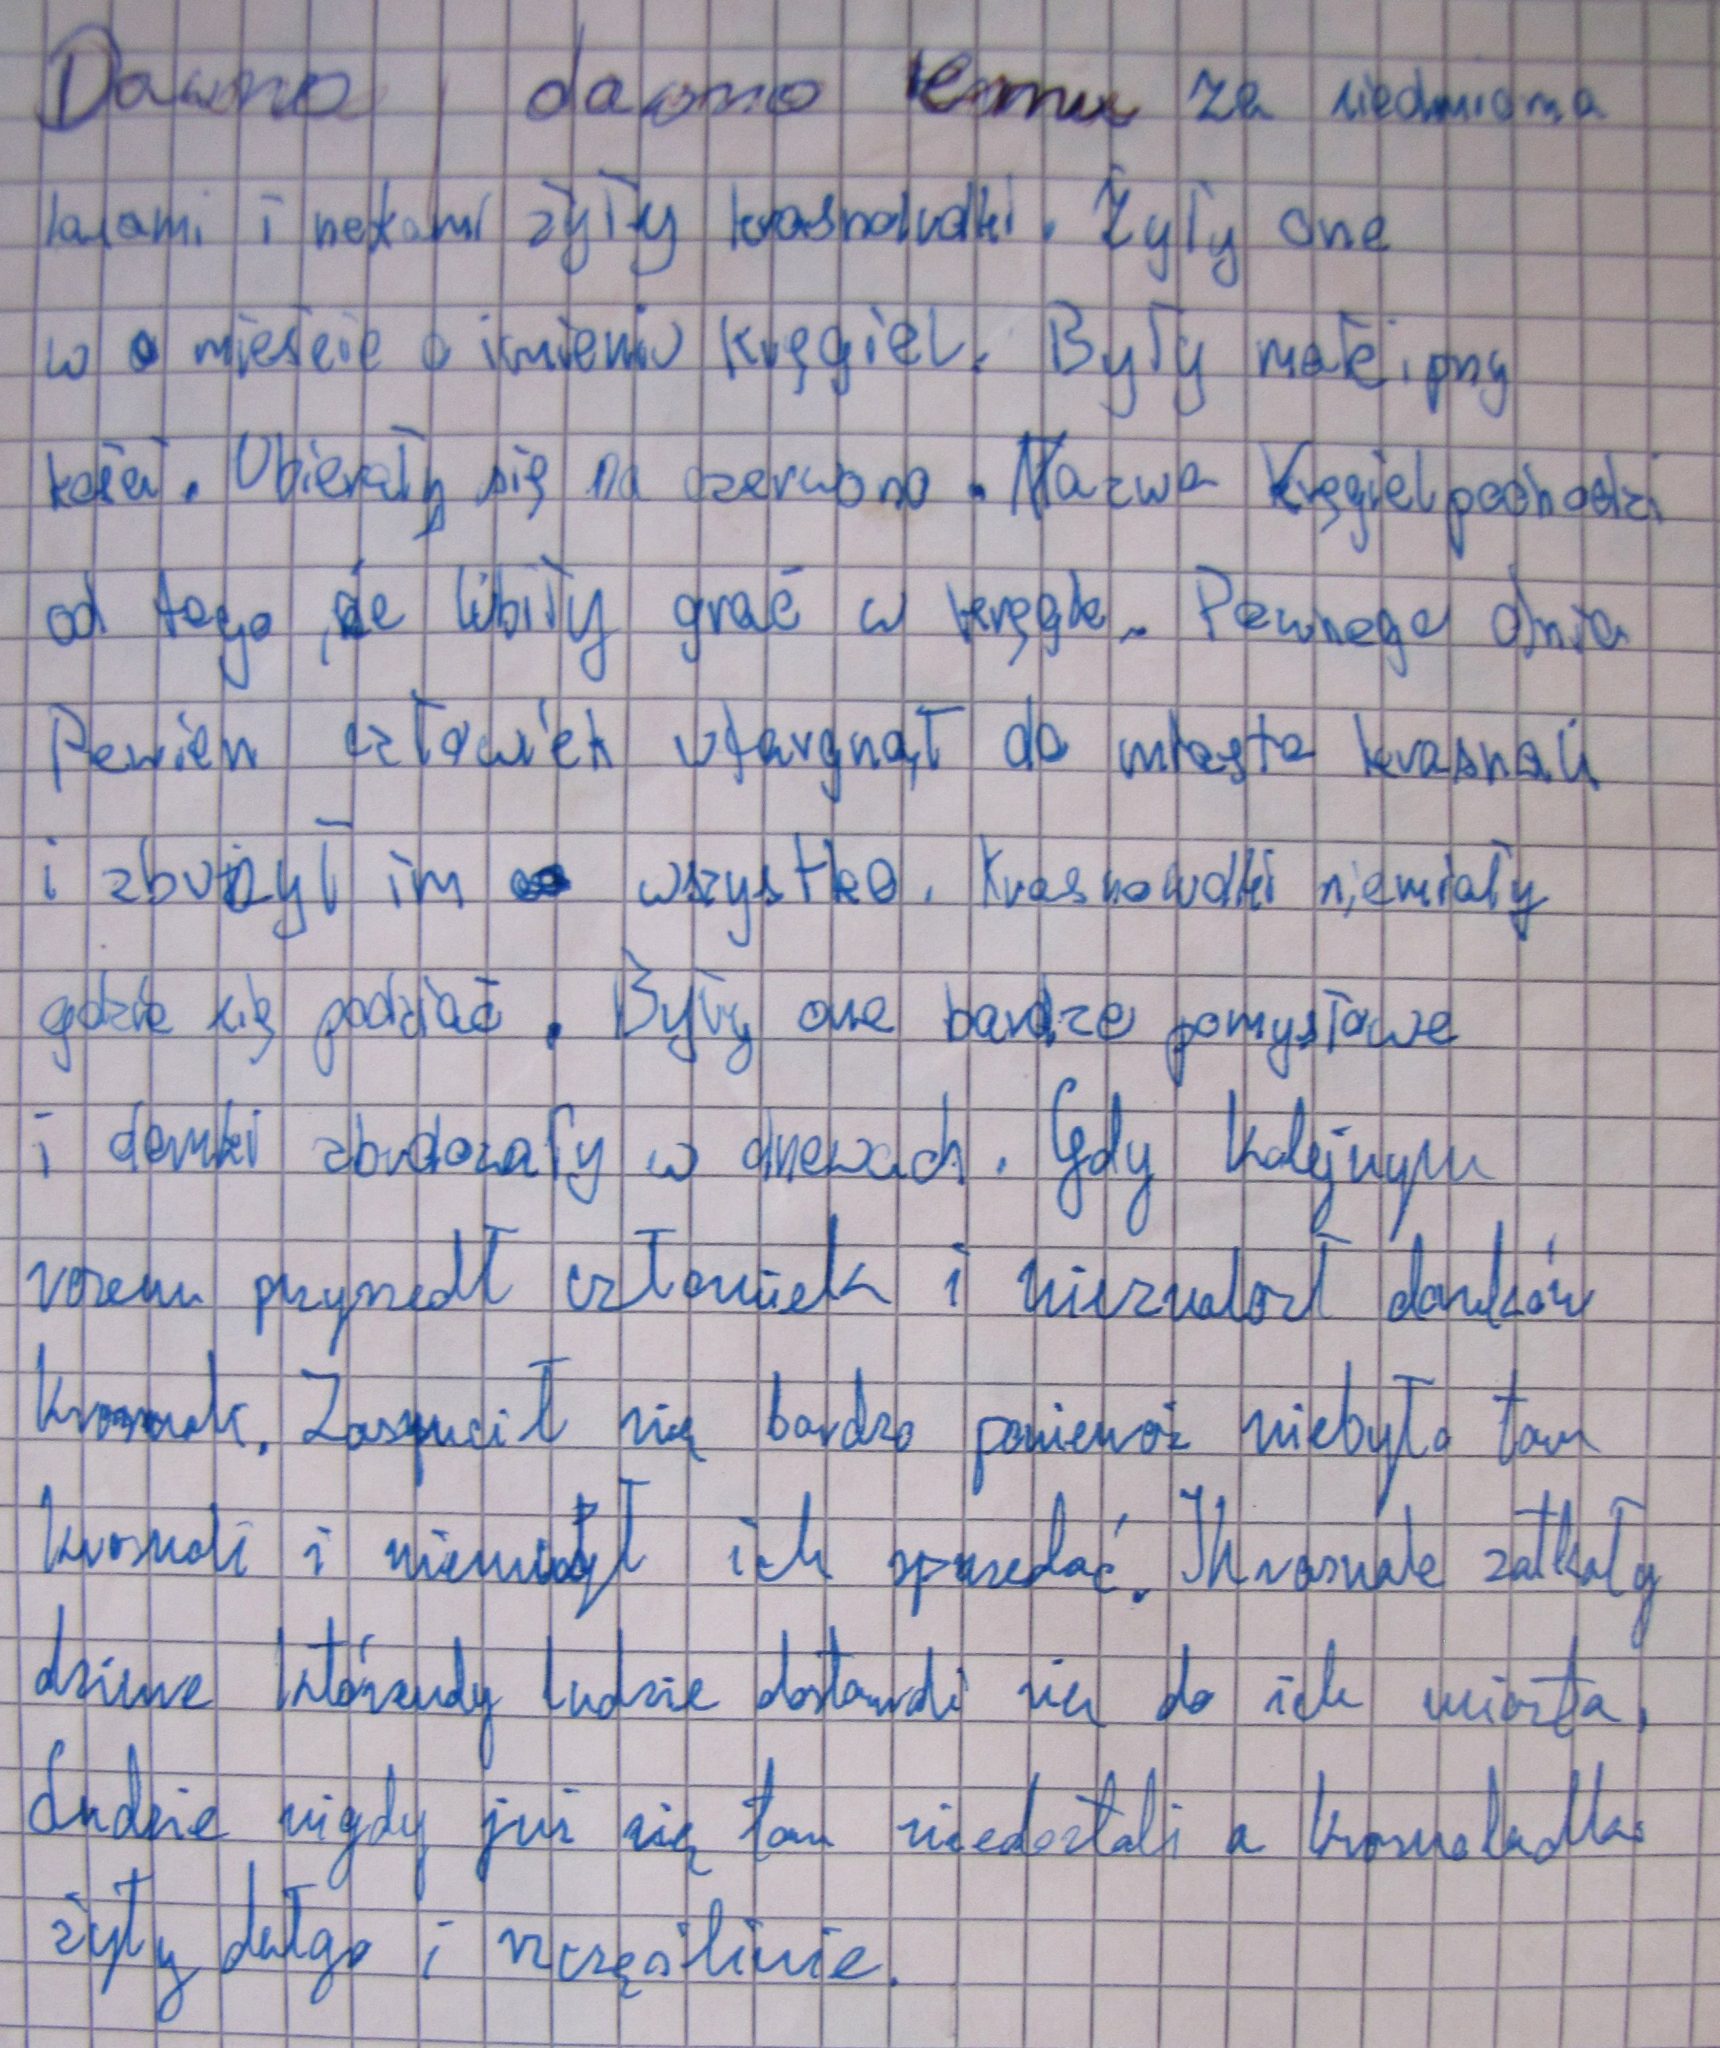 Dawno, dawno temu za siedmioma
lasami i rzekami żyły krasnoludki. Żyły one
w mieście o imieniu Kręgiel. Były małe i pszy
kości. Ubierały się na czerwono. Nazwa Kręgiel pochodzi
od tego, że lubiły grać w kręgle. Pewnego dnia
Pewien człowiek vtargnął do miasta krasnali
i zbużył im wszystko. Krasnowdki niemiały
gdzie się podziać. Były one bardzo pomysłowe
i domki zbudowały w drzewach. Gdy kolejnym
razem przyszedł człowiek i nieznalazł domków
krasnali. Zasmucił się bardzo ponieważ niebyło tam
krasnali i niemógł ich sprzedać. Krasnale zatkały
dziure którendy ludzie dostawali się do ich miasta.
Ludzie nigdy już się tam niedostali a krasnoludki
żyły długo i szczęśliwie.